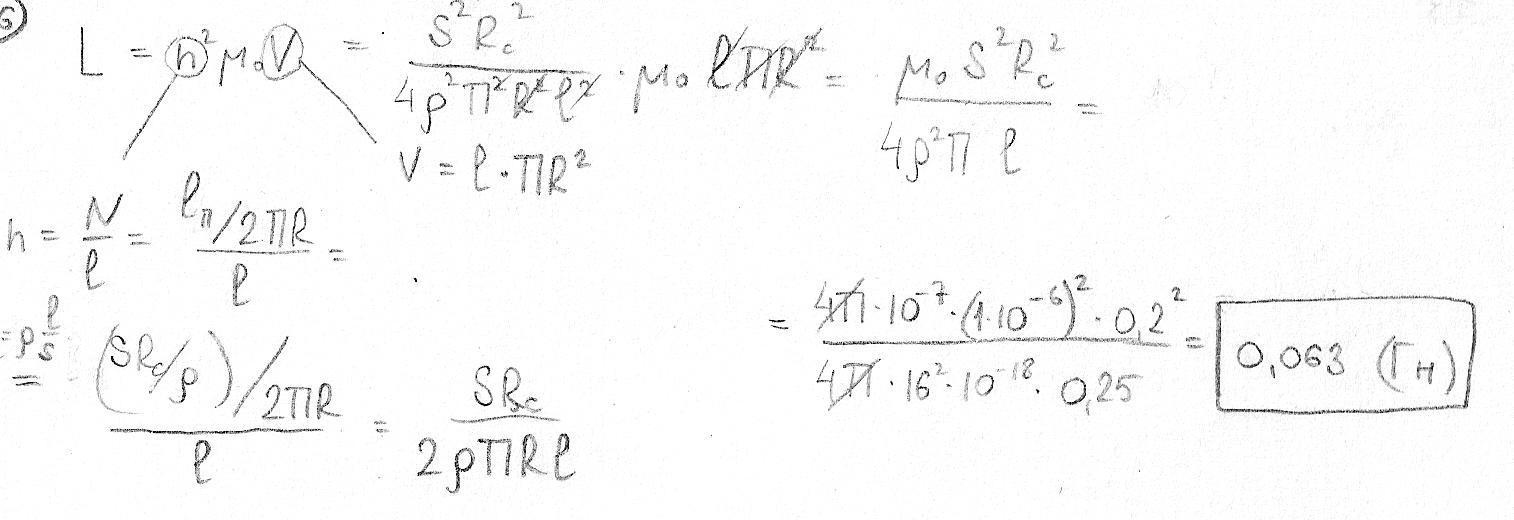 6)
L = n² μ₀ V = S²R_c² / 4ρ²π²R²ℓ² · μ₀ ℓπR² = μ₀ S²R_c² / 4ρ²π ℓ =
V = ℓ · πR²
n = N/ℓ = ℓ_п/2πR / ℓ =
= ρ ℓ/S
= (SR_c/ρ)/2πR / ℓ = SR_c / 2ρπRℓ
= 4π·10⁻⁷·(1·10⁻⁶)²·0,2² / 4π·16²·10⁻¹⁸·0,25 = 0,063 (Гн)